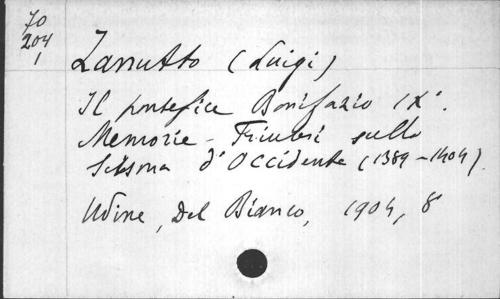 70
204
1
Zanutto (Luigi)
Il pontefice Bonifazio IX°.
Memorie - Friulesi sullo
Scisma d'Occidente (1389-1404).
Udine, Del Bianco, 1904, 8°